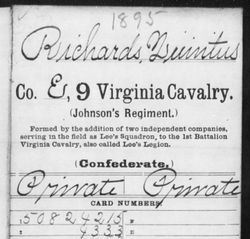 1895
Richards, Quintus
Co. E, 9 Virginia Cavalry.
(Johnson's Regiment.)
Formed by the addition of two independent companies,
serving in the field as Lee's Squadron, to the 1st Battalion
Virginia Cavalry, also called Lee's Legion.
(Confederate.)
Private Private
CARD NUMBERS.
50824215
" 4333 "